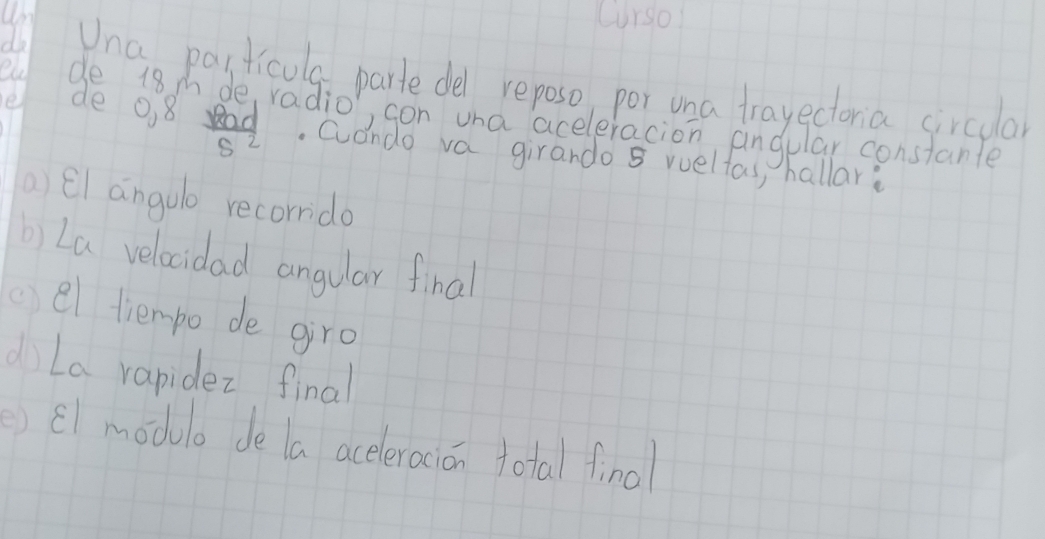 Curso:
Una partícula parte del reposo, por una trayectoria circular
de 18 m de radio, con una aceleración angular constante
de 0,8 Rad/s². Cuando va girando 5 vueltas, hallar:
a) El ángulo recorrido
b) La velocidad angular final
c) el tiempo de giro
d) La rapidez final
e) El módulo de la aceleración total final